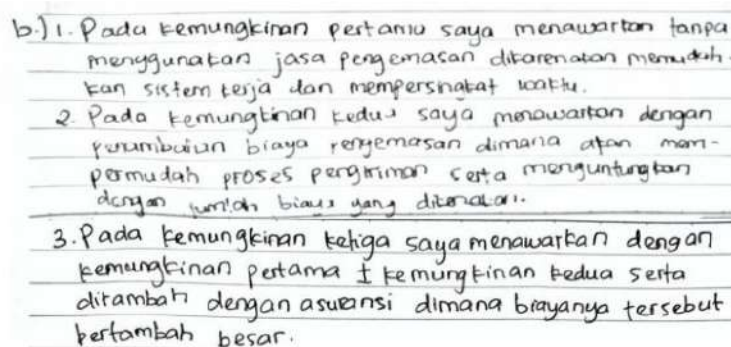 b.) 1. Pada kemungkinan pertama saya menawarkan tanpa
menggunakan jasa pengemasan dikarenakan memudah-
kan sistem kerja dan mempersingkat waktu.
2. Pada kemungkinan kedua saya menawarkan dengan
biaya pengemasan dimana akan mem-
permudah proses pengiriman serta menguntungkan
dengan jumlah biaya yang dikenakan.
3. Pada kemungkinan ketiga saya menawarkan dengan
kemungkinan pertama ± kemungkinan kedua serta
ditambah dengan asuransi dimana biayanya tersebut
bertambah besar.